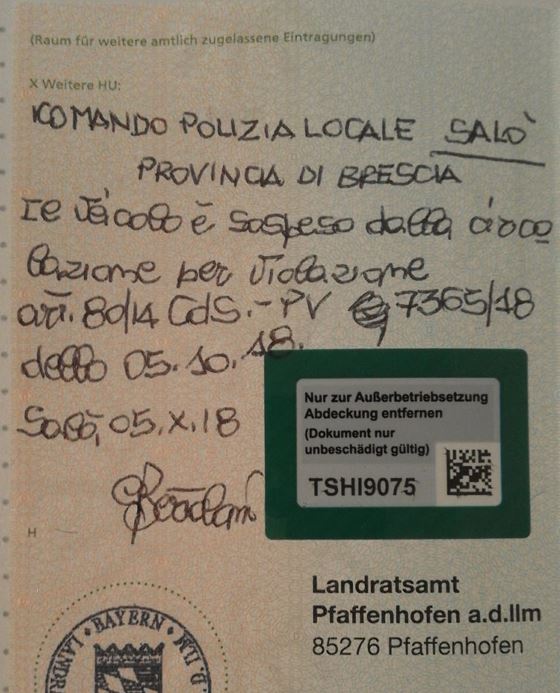 (Raum für weitere amtlich zugelassene Eintragungen)
X Weitere HU:
COMANDO POLIZIA LOCALE SALÒ
PROVINCIA DI BRESCIA
Il veicolo è sospeso dalla circo
lazione per violazione
art. 80/14 CdS.- PV 7365/18
dello 05.10.18.
Salò, 05.X.18
Nur zur Außerbetriebsetzung
Abdeckung entfernen
(Dokument nur
unbeschädigt gültig)
TSHI9075
H
Landratsamt
Pfaffenhofen a.d.Ilm
85276 Pfaffenhofen
BAYERN